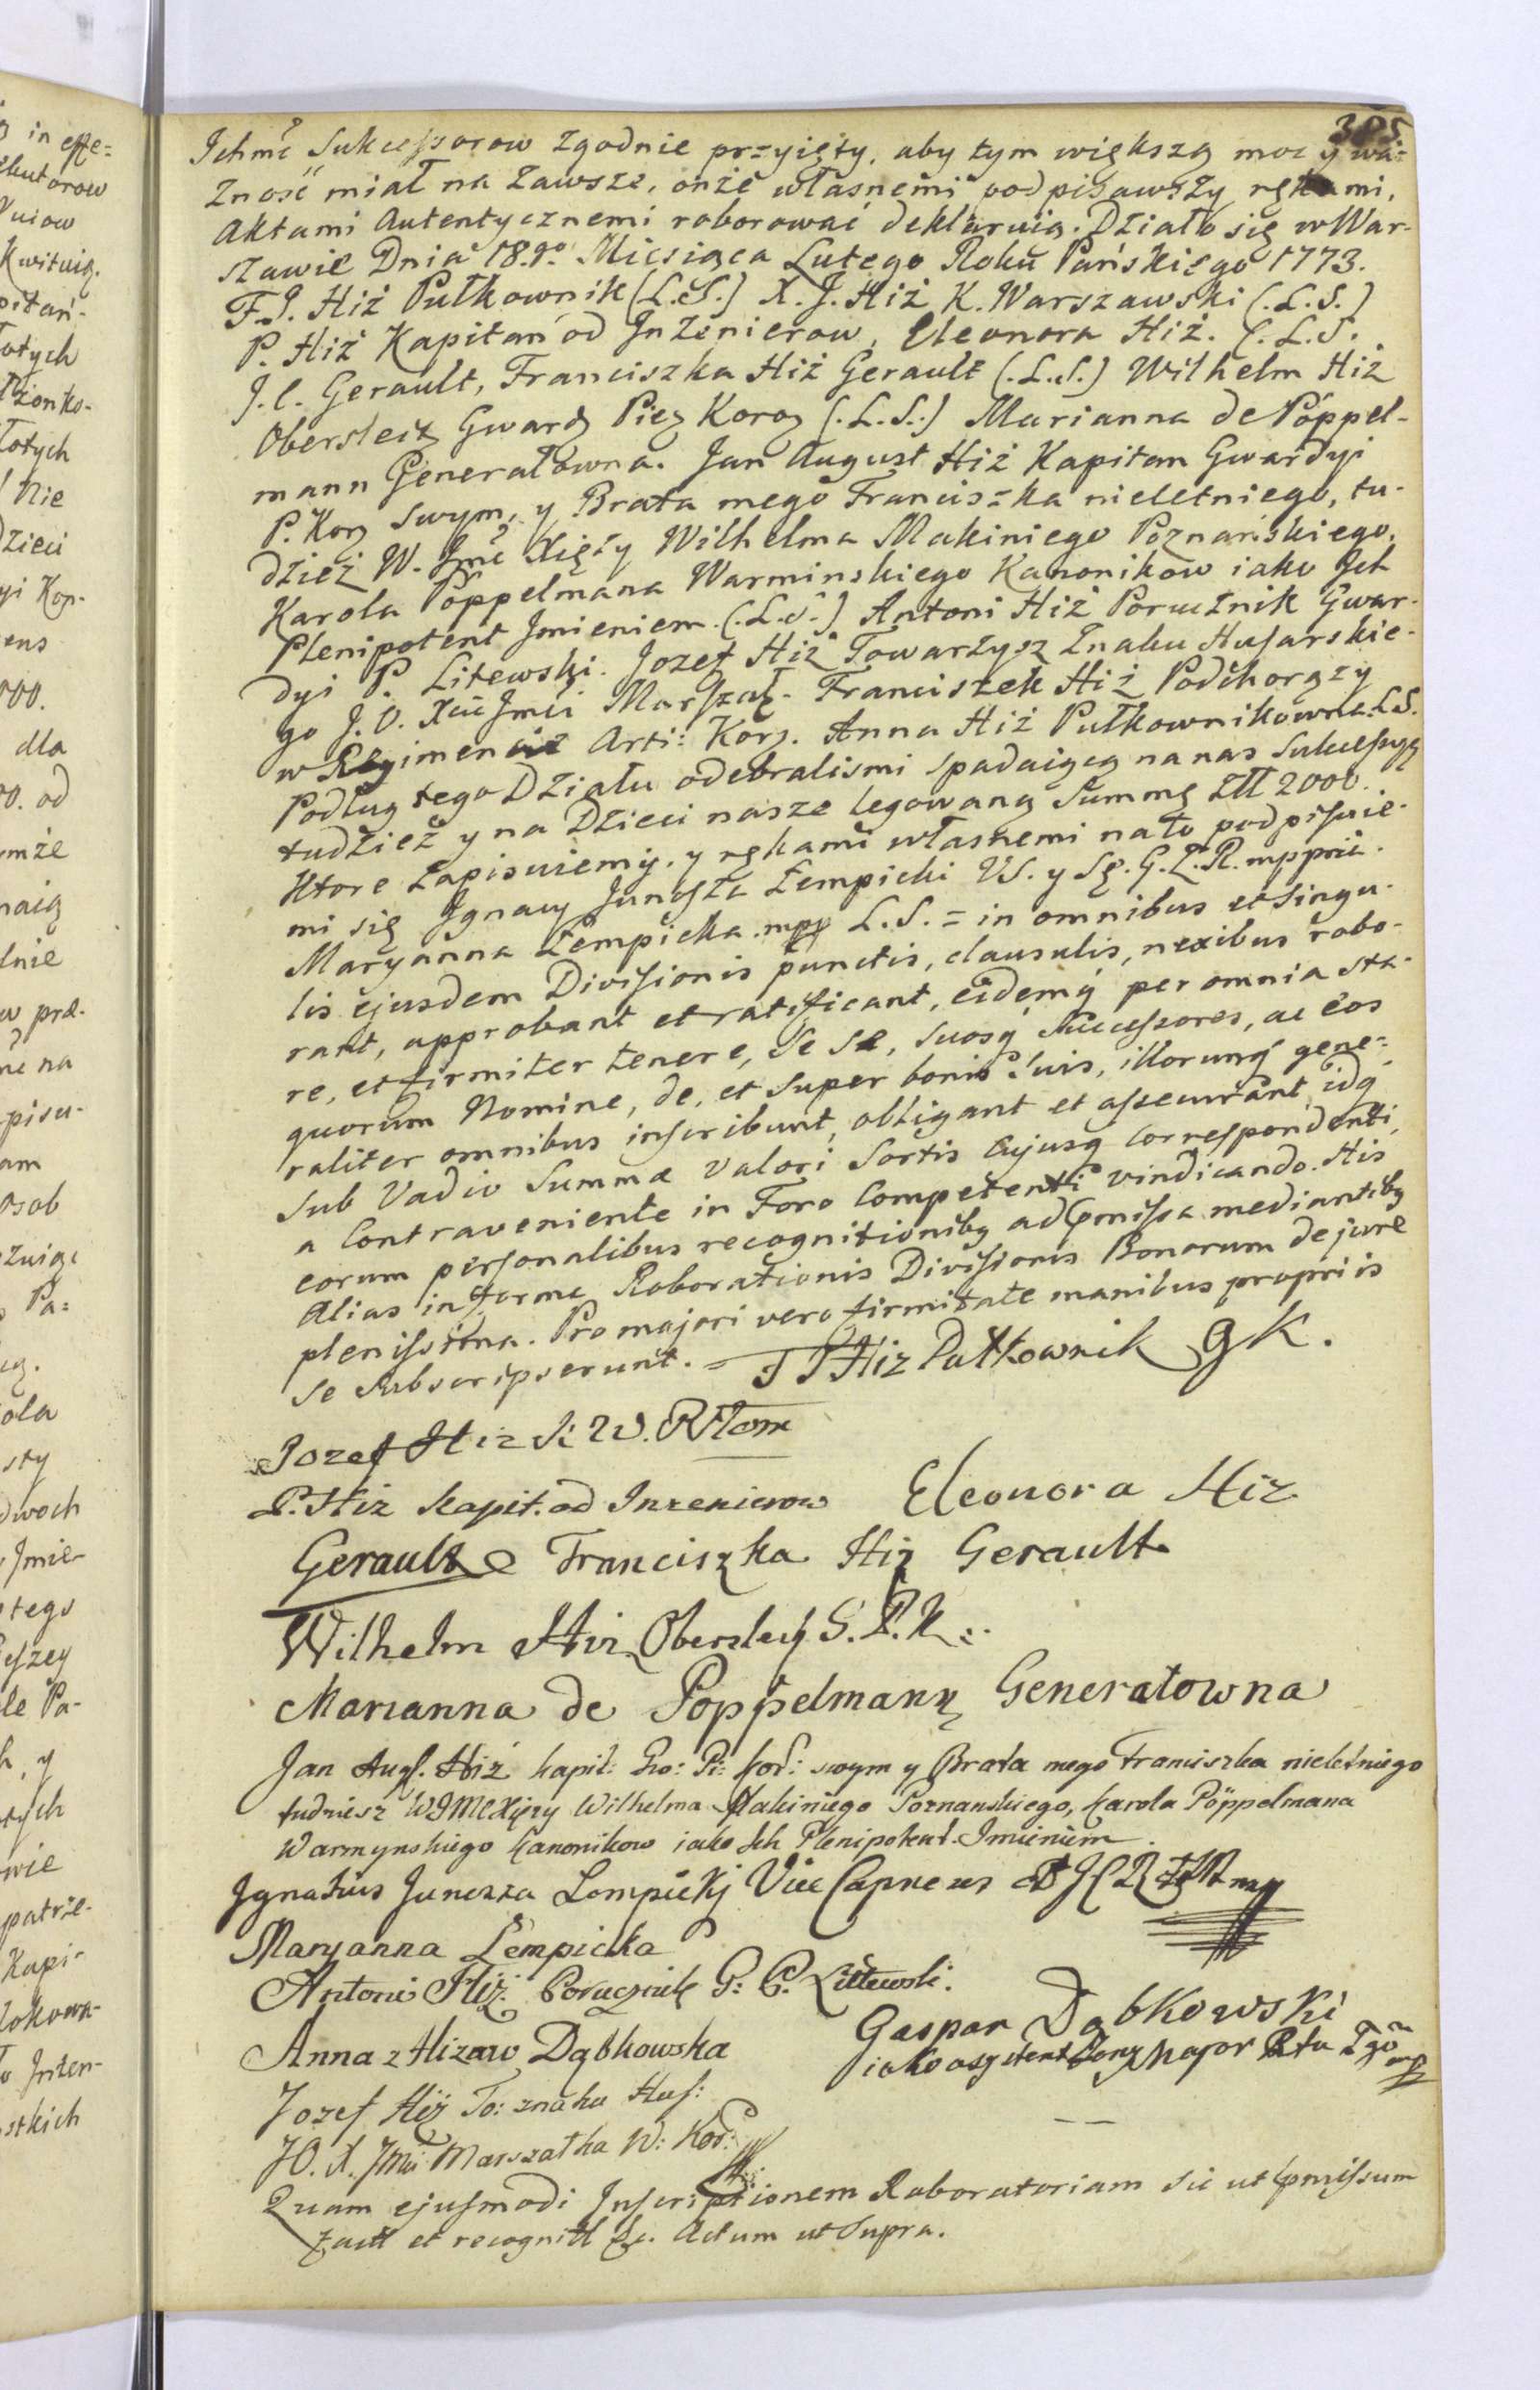 in effe=
kutorow
Kwituią.
pitań-
łotych
łżonko-
łotych
Nie
Dzieci
yi Kor-
ens
000.
dla
00. od
mże
naią
lnie
w præ-
na
pisu-
am
osob
Pa=
ola
sty
dwoch
Jmie-
tego
le Pa-
y
wie
patrze-
Kapi-
lokowa-
Jnżen-
stkich
305
Ichmć Sukcessorow zgodnie przyięty, aby tym większą moc y wa=
żność miał na zawsze, onże własnemi podpisawszy rękami,
Aktami Autentycznemi roborować deklaruią. Działo się w War-
szawie Dnia 18.go Miesiąca Lutego Roku Pańskiego 1773.
F.J. Hiż Pułkownik (L.S.) X. J. Hiż K. Warszawski (.L.S.)
P. Hiż Kapitan od Jnżenierow, Eleonora Hiż. (.L.S.
J.C. Gerault, Franciszka Hiż Gerault (.L.S.) Wilhelm Hiż
Oberszleit Gward Piez Koroz (.L.S.) Marianna de Pöppel-
mann Generałowna. Jan August Hiż Kapitan Gwardyi
P. Kor swym, y Brata mego Franciszka nieletniego, tu-
dzież W. Jmć Xięży Wilhelma Makiniego Poznańskiego,
Karola Pöppelmana Warminskiego Kanonikow iako Jch
Plenipotent Jmieniem. (.L.S.) Antoni Hiż Porucznik Gwar-
dyi P. Litewski. Jozef Hiż Towarzysz Znaku Husarskie-
go J.O. Xcia Jmci Marszał. Franciszek Hiż Podchorąży
w Regimencie Arti: Kor. Anna Hiż Pułkownikowna L.S.
Podług tego Działu odebralismi spadaiącą na nas Sukcessyą
tudzież y na Dzieci nasze legowaną Summę Złł 2000.
Ktore zapisuiemy, y rękami własnemi na to podpisuie-
mi się Jgnacy Junosza Łempicki VS. y Sę. G.Z.R. mpprię.
Maryanna Łempicka mpp L.S. = in omnibus et singu-
lis ejusdem Divisionis punctis, clausulis, nexibus robo-
rant, approbant et ratificant, eidemq́ per omnia sta-
re, et firmiter tenere, se se, suosq́ Successores, ac eos
quorum Nomine, de, et super bonis Suis, illorumq́ gene=
raliter omnibus inscribunt, obligant et assecurant, idq́
sub Vadio Summæ Valori Sortis Cujusq́ Correspondenti,
a Contraveniente in Foro Competenti vindicando. His
eorum personalibus recognitionibq ad pmissa mediantibq
Alias in forma Roborationis Divisionis Bonorum de jure
plenissima. Pro majori vero firmitate manibus propriis
se subscripserunt. = F J Hiz Pułkownik G K.
Jozef Hiz K W.
P. Hiz Kapit. od Inzenierow Eleonora Hiz
Gerault Franciszka Hiz Gerault
Wilhelm Hiz Oberszleit G. P. K.
Marianna de Poppelmann Generałowna
Jan Aug. Hiż kapit: Gw: Pi: kor: swym y Brata mego Franciszka nieletniego
tudziesz WJMCXięzy Wilhelma Makiniego Poznanskiego, Karola Pöppelmana
Warmynskiego Kanonikow iako Ich Plenipotent. Imieniem.
Jgnatius Junosza Lempickj Vice Capneus
Maryanna Łempicka
Antoni Hiż Porucznik G: P. Littewski.
Anna z Hizow Dąbkowska Gaspar Dąbkowski
iako asystent Zony Major
Jozef Hiż To: znaku Hus:
JO. X. Jmci Marszałka W: Kor:
Quam ejusmodi Inscriptionem Roboratoriam sic ut pmissum
facti et recogniti &c. Actum ut Supra.